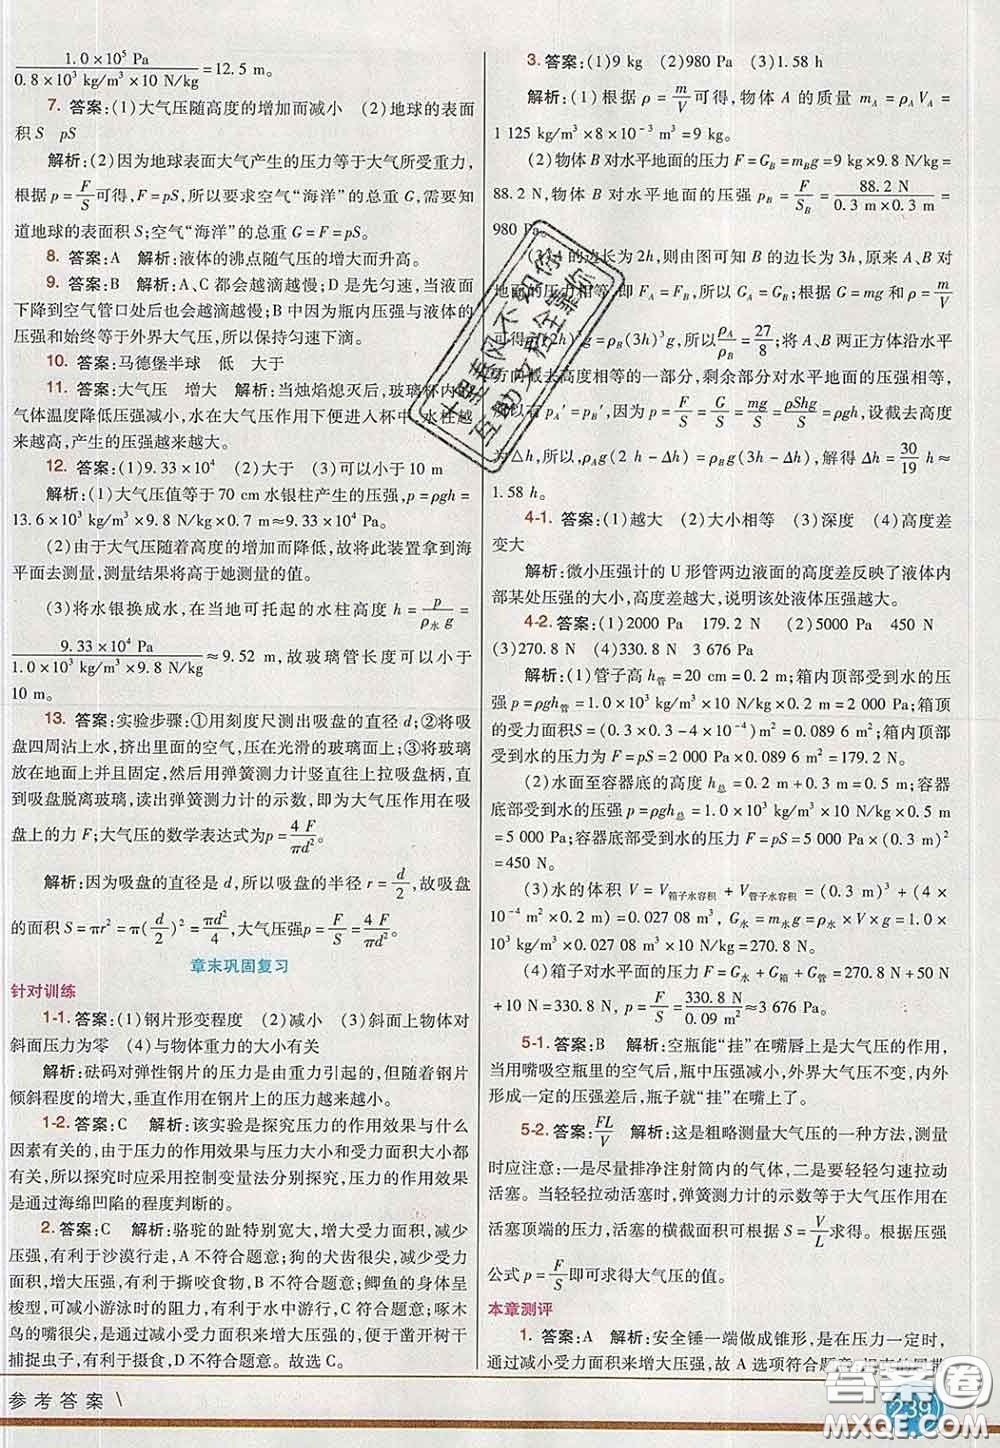 1.0×10⁵ Pa
0.8×10³ kg/m³×10 N/kg =12.5 m。
7. 答案:(1)大气压随高度的增加而减小 (2)地球的表面
积S pS
解析:(2)因为地球表面大气产生的压力等于大气所受重力,
根据p=F/S可得,F=pS,所以要求空气“海洋”的总重G,需要知
道地球的表面积S;空气“海洋”的总重G=F=pS。
8. 答案:A 解析:液体的沸点随气压的增大而升高。
9. 答案:B 解析:A、C都会越滴越慢;D是先匀速,当液面
下降到空气管口处后也会越滴越慢;B中因为瓶内压强与液体的
压强和始终等于外界大气压,所以保持匀速下滴。
10. 答案:马德堡半球 低 大于
11. 答案:大气压 增大 解析:当烛焰熄灭后,玻璃杯内
气体温度降低压强减小,水在大气压作用下便进入杯中,水柱越
来越高,产生的压强越来越大。
12. 答案:(1)9.33×10⁴ (2)大于 (3)可以小于10 m
解析:(1)大气压值等于70 cm水银柱产生的压强,p=ρgh=
13.6×10³ kg/m³×9.8 N/kg×0.7 m≈9.33×10⁴ Pa。
(2)由于大气压随着高度的增加而降低,故将此装置拿到海
平面去测量,测量结果将高于她测量的值。
(3)将水银换成水,在当地可托起的水柱高度 h=p/(ρ水g)=
9.33×10⁴ Pa
1.0×10³ kg/m³×9.8 N/kg ≈9.52 m,故玻璃管长度可以小于
10 m。
13. 答案:实验步骤:①用刻度尺测出吸盘的直径d;②将吸
盘四周沾上水,挤出里面的空气,压在光滑的玻璃面上;③将玻璃
放在地面上并且固定,然后用弹簧测力计竖直往上拉吸盘柄,直
到吸盘脱离玻璃,读出弹簧测力计的示数,即为大气压作用在吸
盘上的力F;大气压的数学表达式为p=4F/πd²。
解析:因为吸盘的直径是d,所以吸盘的半径r=d/2,故吸盘
的面积S=πr²=π(d/2)²=πd²/4,大气压强p=F/S=4F/πd²。
章末巩固复习
针对训练
1-1. 答案:(1)钢片形变程度 (2)减小 (3)斜面上物体对
斜面压力为零 (4)与物体重力的大小有关
解析:砝码对弹性钢片的压力是由重力引起的,但随着钢片
倾斜程度的增大,垂直作用在钢片上的压力越来越小。
1-2. 答案:C 解析:该实验是探究压力的作用效果与什么
因素有关的,由于压力的作用效果与压力大小和受力面积大小都
有关,所以探究时应采用控制变量法分析探究,压力的作用效果
是通过海绵凹陷的程度判断的。
2. 答案:C 解析:骆驼的趾特别宽大,增大受力面积,减少
压强,有利于沙漠行走,A不符合题意;狗的犬齿很尖,减少受力
面积,增大压强,有利于撕咬食物,B不符合题意;鲫鱼的身体呈
梭型,可减小游泳时的阻力,有利于水中游行,C符合题意;啄木
鸟的嘴很尖,通过减小受力面积来增大压强的,便于凿开树干
捕捉虫子,有利于摄食,D不符合题意。故选C。
3. 答案:(1)9 kg (2)980 Pa (3)1.58 h
解析:(1)根据ρ=m/V可得,物体A的质量m_A=ρ_A V_A=
1 125 kg/m³×8×10⁻³ m³=9 kg。
(2)物体B对水平地面的压力F=G_B=m_B g=9 kg×9.8 N/kg=
88.2 N,物体B对水平地面的压强p_B=F/S_B=88.2 N/(0.3 m×0.3 m)=
980 Pa。
(3)A的边长为2h,由图可知B的边长为3h,原来A、B对
地面的压力相等,即F_A=F_B,所以G_A=G_B。根据G=mg和ρ=m/V
可得ρ_A(2h)³g=ρ_B(3h)³g,所以ρ_A/ρ_B=27/8;将A、B两正方体沿水平
方向截去高度相等的一部分,剩余部分对水平地面的压强相等,
所以p_A′=p_B′,因为p=F/S=G/S=mg/S=ρShg/S=ρgh,设截去高度
为Δh,所以,ρ_A g(2h-Δh)=ρ_B g(3h-Δh),解得Δh=30/19 h≈
1.58 h。
4-1. 答案:(1)越大 (2)大小相等 (3)深度 (4)高度差
变大
解析:微小压强计的U形管两边液面的高度差反映了液体内
部某处压强的大小,高度差越大,说明该处液体压强越大。
4-2. 答案:(1)2000 Pa 179.2 N (2)5000 Pa 450 N
(3)270.8 N (4)330.8 N 3 676 Pa
解析:(1)管子高h管=20 cm=0.2 m;箱内顶部受到水的压
强p=ρgh管=1.0×10³ kg/m³×10 N/kg×0.2 m=2 000 Pa;箱顶
的受力面积S=(0.3×0.3-4×10⁻⁴) m²=0.089 6 m²;箱内顶部
受到水的压力F=pS=2 000 Pa×0.089 6 m²=179.2 N。
(2)水面至容器底的高度h总=0.2 m+0.3 m=0.5 m;容器
底部受到水的压强=ρgh总=1.0×10³ kg/m³×10 N/kg×0.5 m
=5 000 Pa;容器底部受到水的压力F=pS=5 000 Pa×(0.3 m)²
=450 N。
(3)水的体积V=V箱子水容积+V管子水容积=(0.3 m)³+(4×
10⁻⁴ m²×0.2 m)=0.027 08 m³,G水=m水g=ρ水×V×g=1.0×
10³ kg/m³×0.027 08 m³×10 N/kg=270.8 N。
(4)箱子对水平面的压力:F=G水+G箱+G管=270.8 N+50
N+10 N=330.8 N,p=F/S=330.8 N/0.09 m²≈3 676 Pa。
5-1. 答案:B 解析:空瓶能“挂”在嘴唇上是大气压的作用,
当用嘴吸空瓶里的空气后,瓶中压强减小,外界大气压不变,内外
形成一定的压强差后,瓶子就“挂”在嘴上了。
5-2. 答案:FL/V 解析:这是粗略测量大气压的一种方法,测量
时应注意:一是尽量排净注射筒内的气体,二是要轻轻匀速拉动
活塞。当轻轻拉动活塞时,弹簧测力计的示数等于大气压作用在
活塞顶端的压力,活塞的横截面积可根据S=V/L求得。根据压强
公式p=F/S即可求得大气压的值。
本章测评
1. 答案:A 解析:安全锤一端做成锥形,是在压力一定时,
通过减小受力面积来增大压强,故A选项符合题意;
千里春风不如你
互助文档全靠你
参考答案
239
答案圈
MXQE.COM